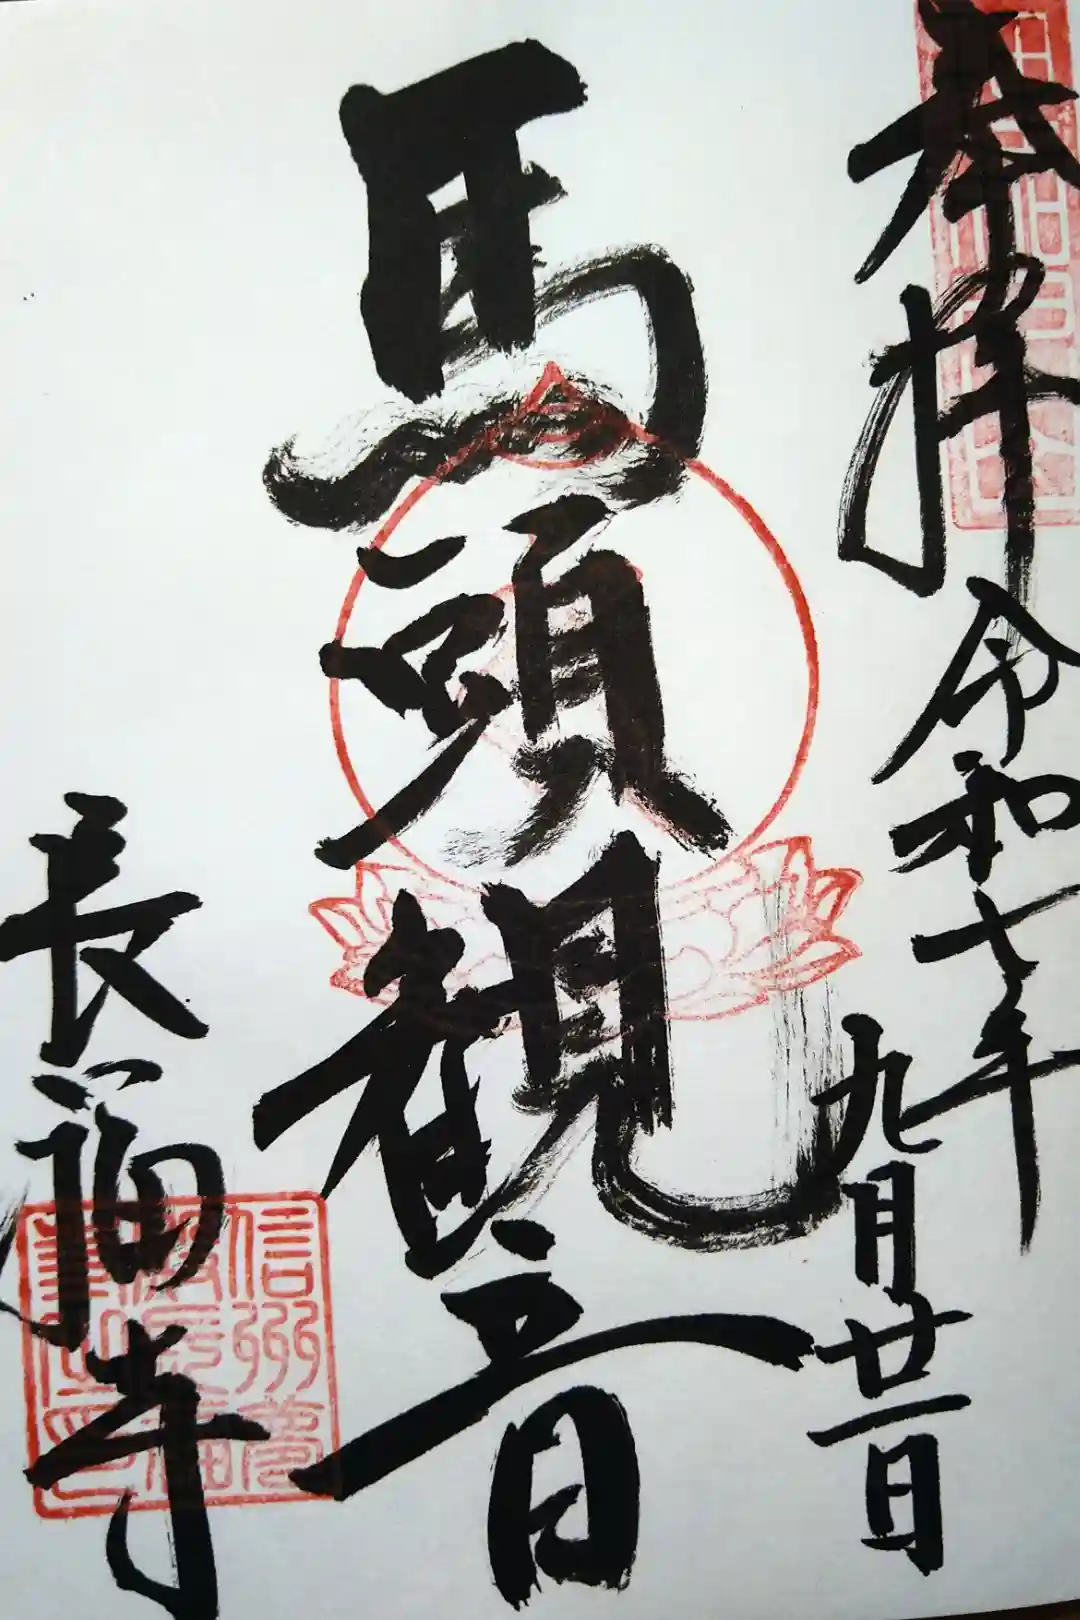 奉拝
令和七年
九月廿一日
馬頭観音
長福寺